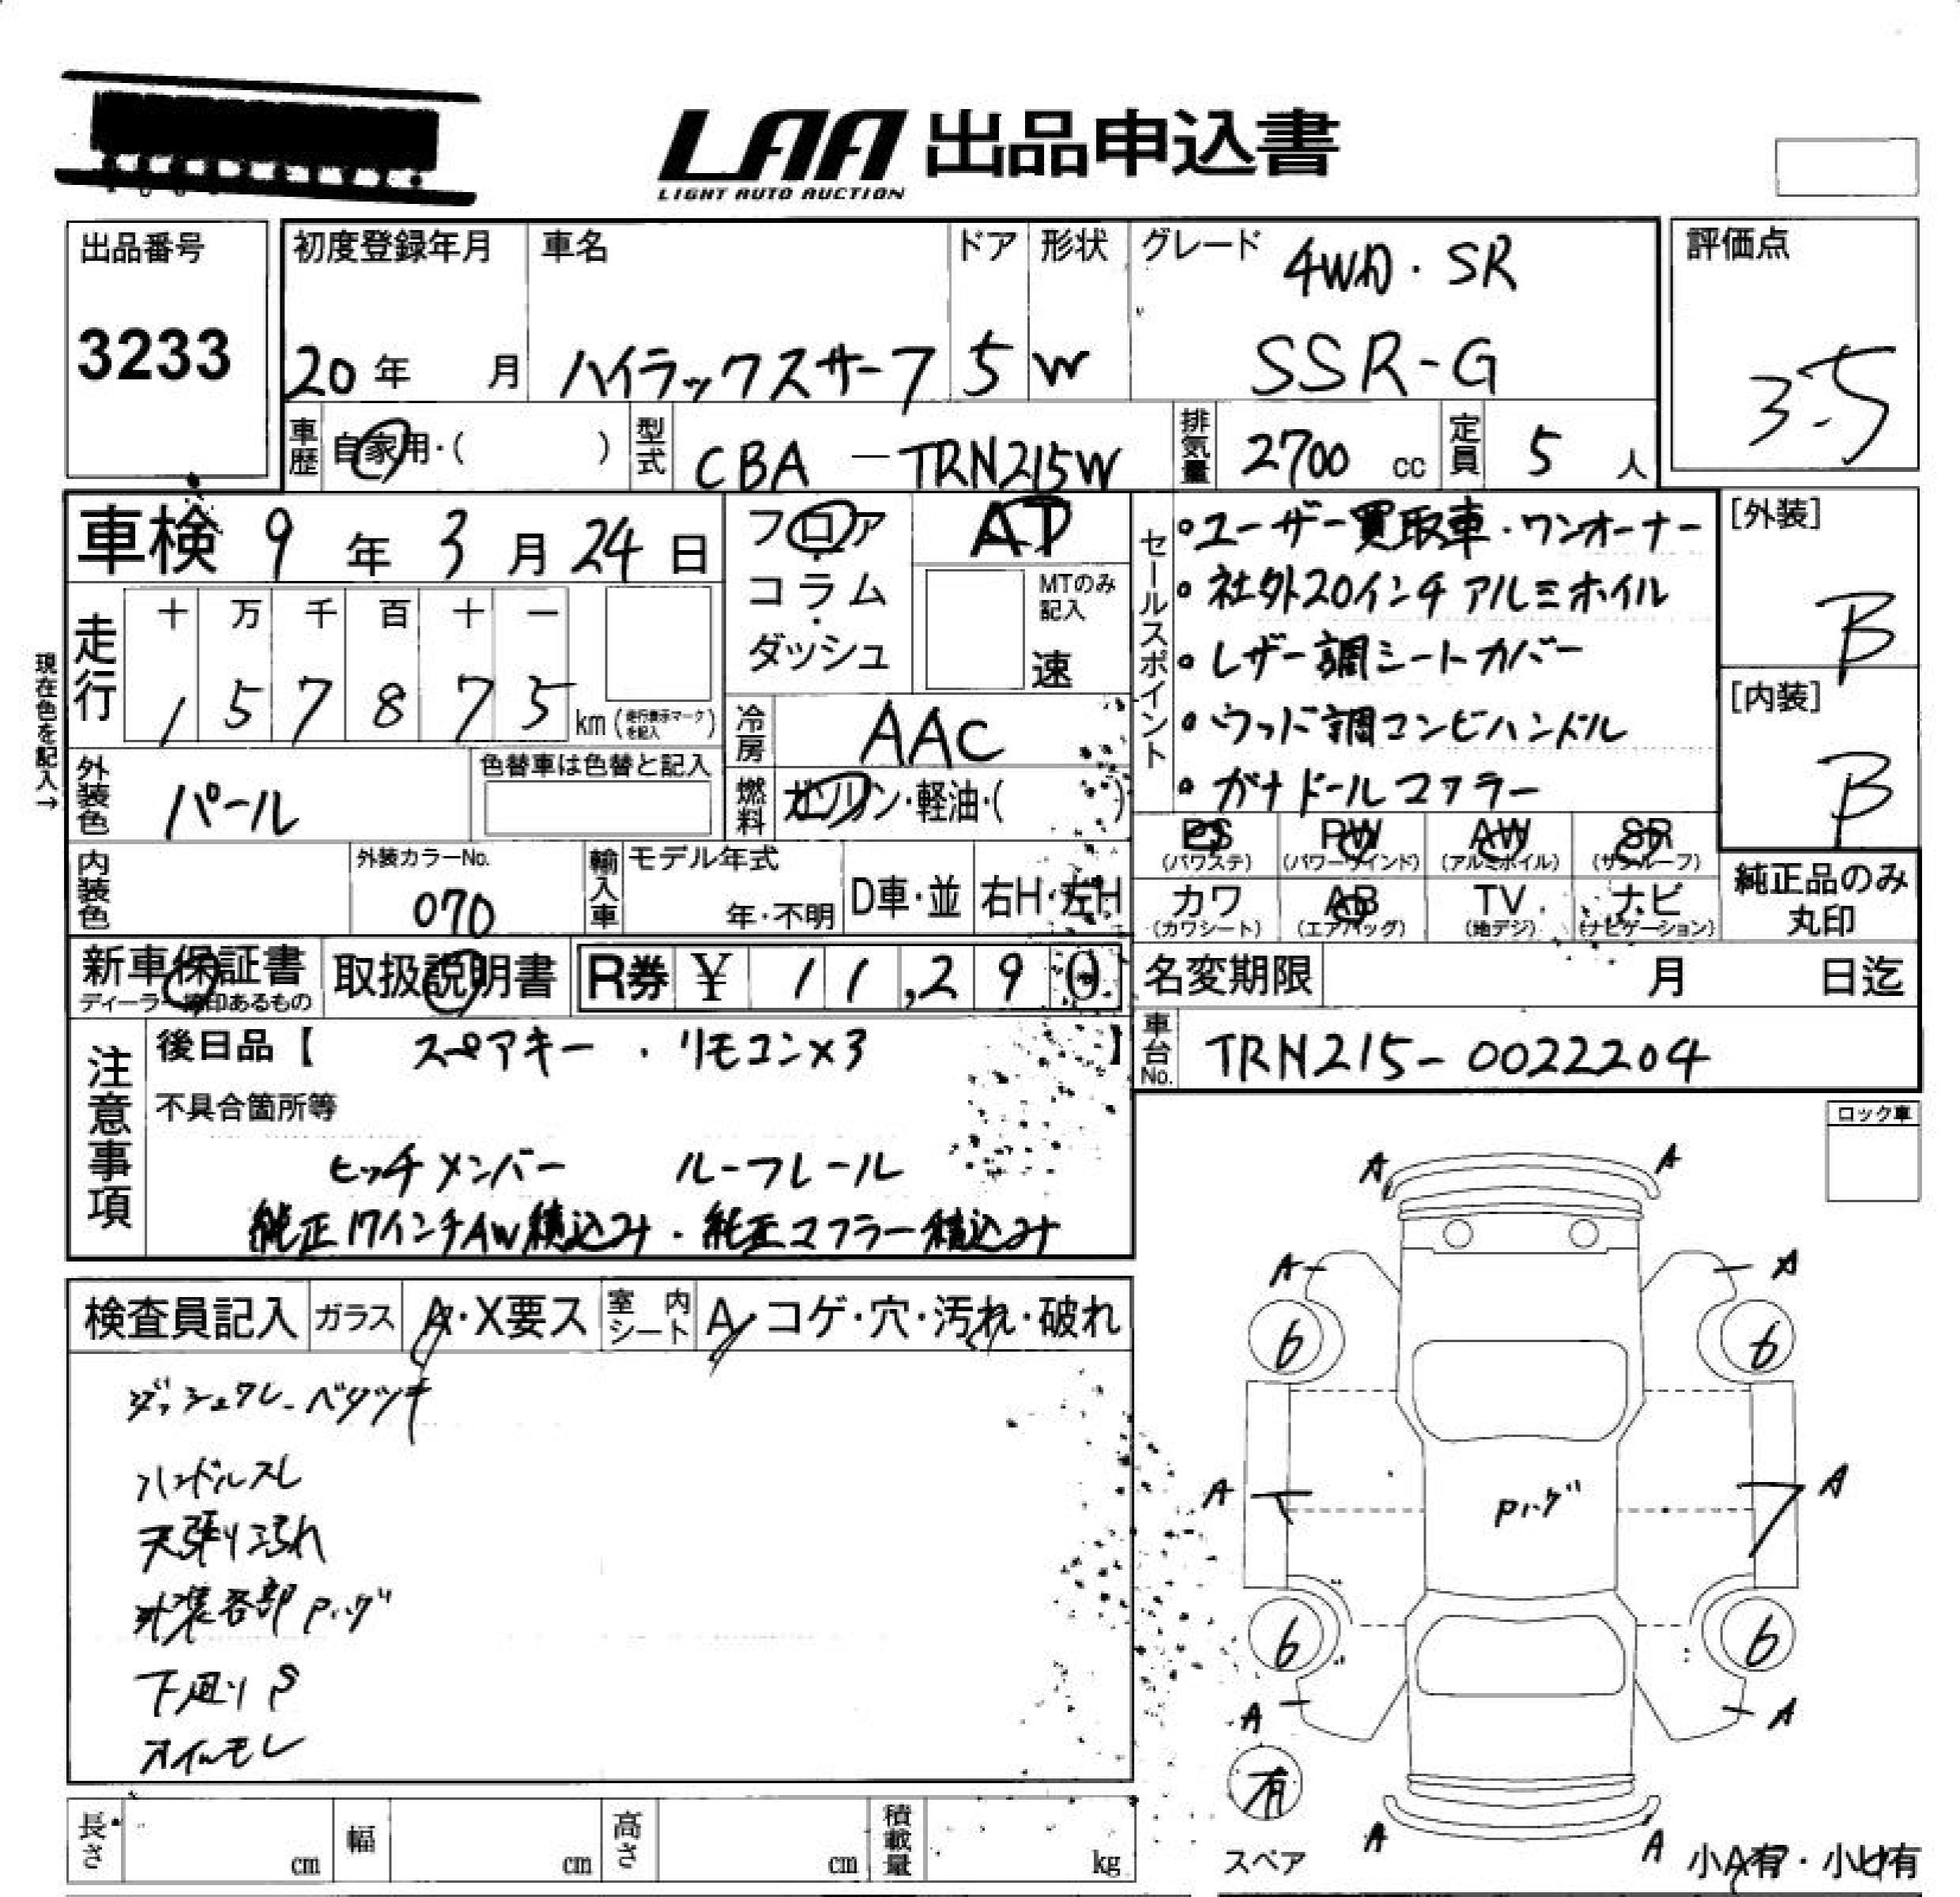 LAA 出品申込書
LIGHT AUTO AUCTION
出品番号
3233
初度登録年月
20年 月
車名
ハイラックスサーフ
ドア
5
形状
W
グレード
4WD・SR
SSR-G
評価点
3.5
車歴 自家用・( )
型式 CBA-TRN215W
排気量 2700 cc
定員 5 人
車検 9年 3月 24日
フロア・コラム・ダッシュ
AT
MTのみ記入
速
走行
十 万 千 百 十 一
1 5 7 8 7 5 km (走行表示マークを記入)
現在色を記入→
冷房 AAC
外装色 パール
色替車は色替と記入
燃料 ガソリン・軽油・( )
内装色
外装カラーNo.
070
輸入車 モデル年式
年・不明
D車・並
右H・左H
セールスポイント
・ユーザー買取車・ワンオーナー
・社外20インチアルミホイル
・レザー調シートカバー
・ウッド調コンビハンドル
・ガナドールマフラー
[外装]
B
[内装]
B
PS (パワステ)
PW (パワーウインド)
AW (アルミホイル)
SR (サンルーフ)
カワ (カワシート)
AB (エアバッグ)
TV (地デジ)
ナビ (ナビゲーション)
純正品のみ丸印
新車保証書
ディーラー捺印あるもの
取扱説明書
R券 ¥ 11,290
名変期限 月 日迄
車台No. TRN215-0022204
注意事項
後日品【 スペアキー・リモコン×3 】
不具合箇所等
ヒッチメンバー ルーフレール
純正17インチAW積込み・純正マフラー積込み
ロック車
検査員記入
ガラス A・X要ス
室内シート A・コゲ・穴・汚れ・破れ
ダッシュワレ-ベタツキ
ハンドルスレ
天張り汚れ
外装各部Pハゲ
下廻りS
オイルモレ
A A
A A
6 6
A A
Pハゲ
6 6
A A
有
スペア
A A
小A有・小U有
長さ cm
幅 cm
高さ cm
積載量 kg